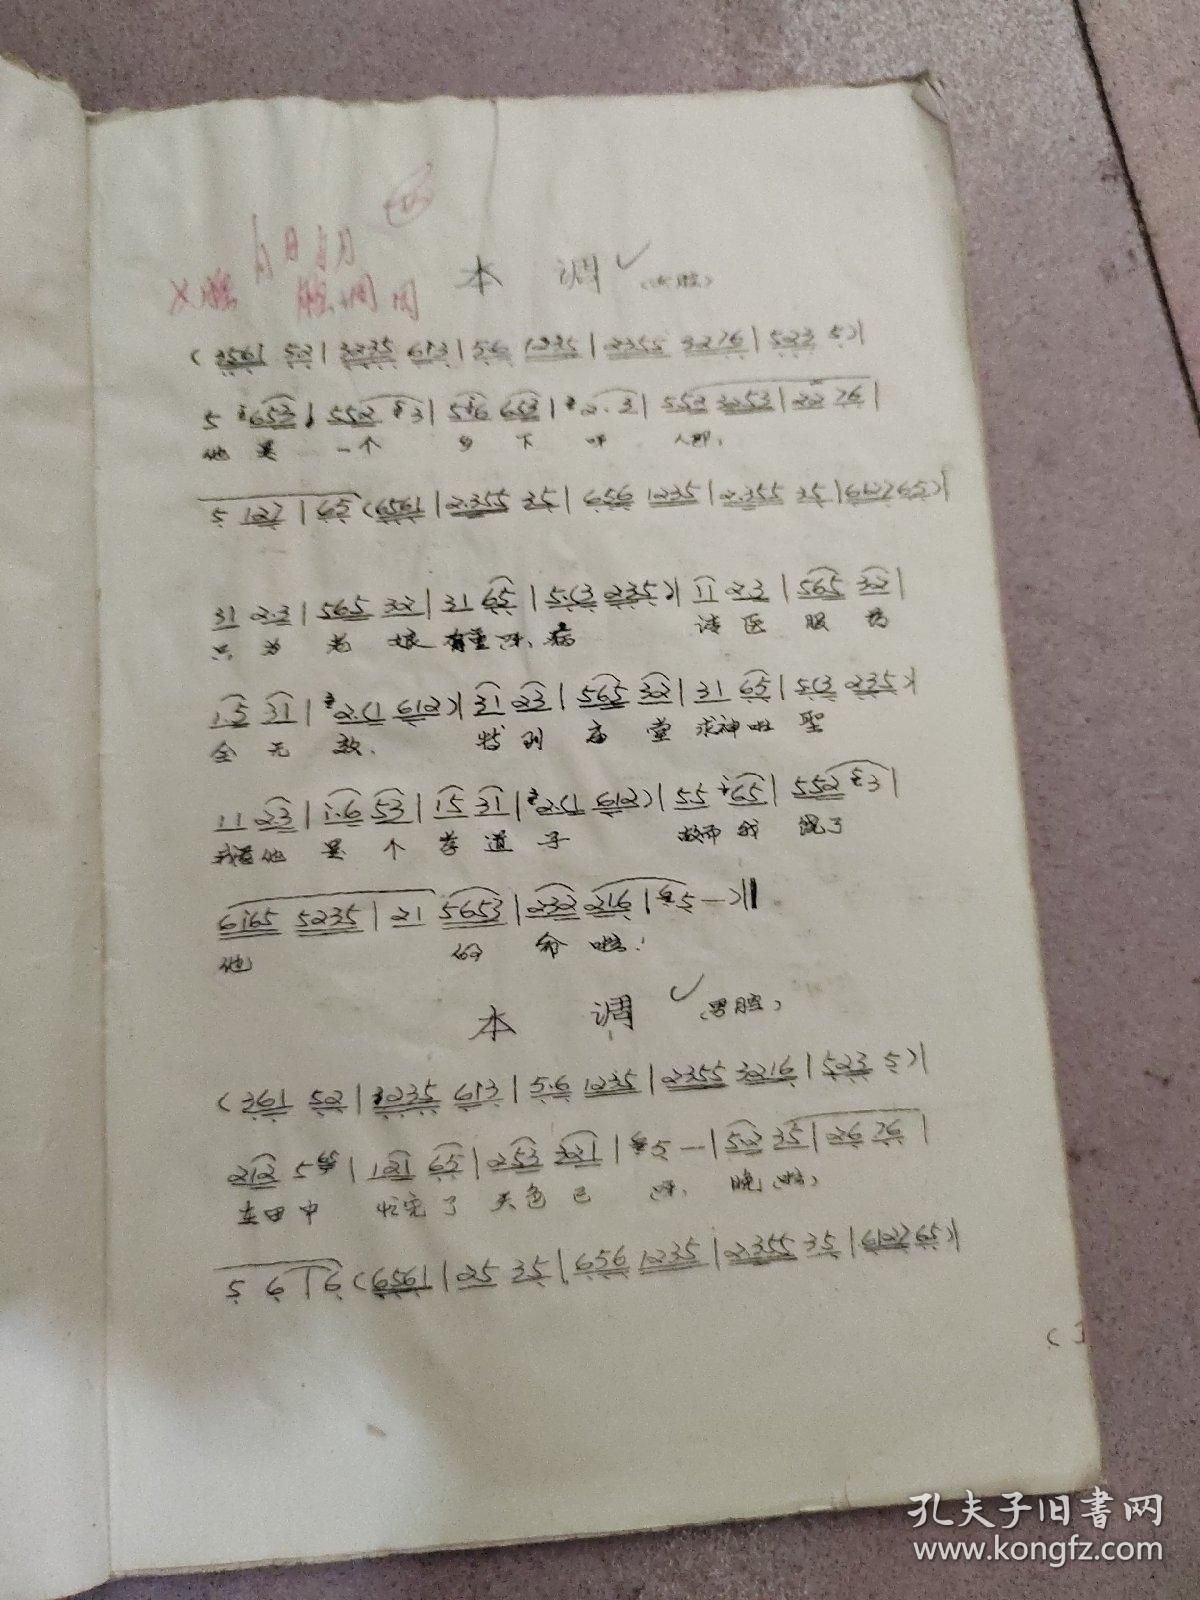 本 调 (女腔)
(3561 52 | 3235 613 | 56 1235 | 2355 3276 | 523 5) |
他 是 一个 乡 下 呀 人那,
5 127 | 65 (6561 | 2.355 35 | 656 1235 | 2.355 35 | 612765) |
31 2.3 | 565 32 | 31 65 | 5.(3 235) | 11 23 | 565 32 |
只 为 老 娘 有重 呀, 病 请 医 服 药
1.5 31 | 2.(1 612) | 31 23 | 565 32 | 31 65 | 5(3 235) |
全 无 效, 特 到 庙 堂 求神 啦 圣
11 23 | 1.6 53 | 15 31 | 2.(1 612) | 55 i65 | 552 3 |
我看他 是 个 孝 道 子 故而 我 饶了
6165 5235 | 21 5653 | 232 216 | 5 — ) ‖
他 的 命 啦!
本 调 (男腔)
(361 52 | 3235 613 | 5.6 1235 | 2355 3216 | 523 5) |
212 5 | 121 65 | 253 321 | 5 — | 5.2 35 | 26 76 |
在田中 忙完了 天色已 (呀, 晚 (啦)
5 6 | 6 (6561 | 25 35 | 656 1235 | 2.355 35 | 612765) |
孔夫子旧书网
www.kongfz.com